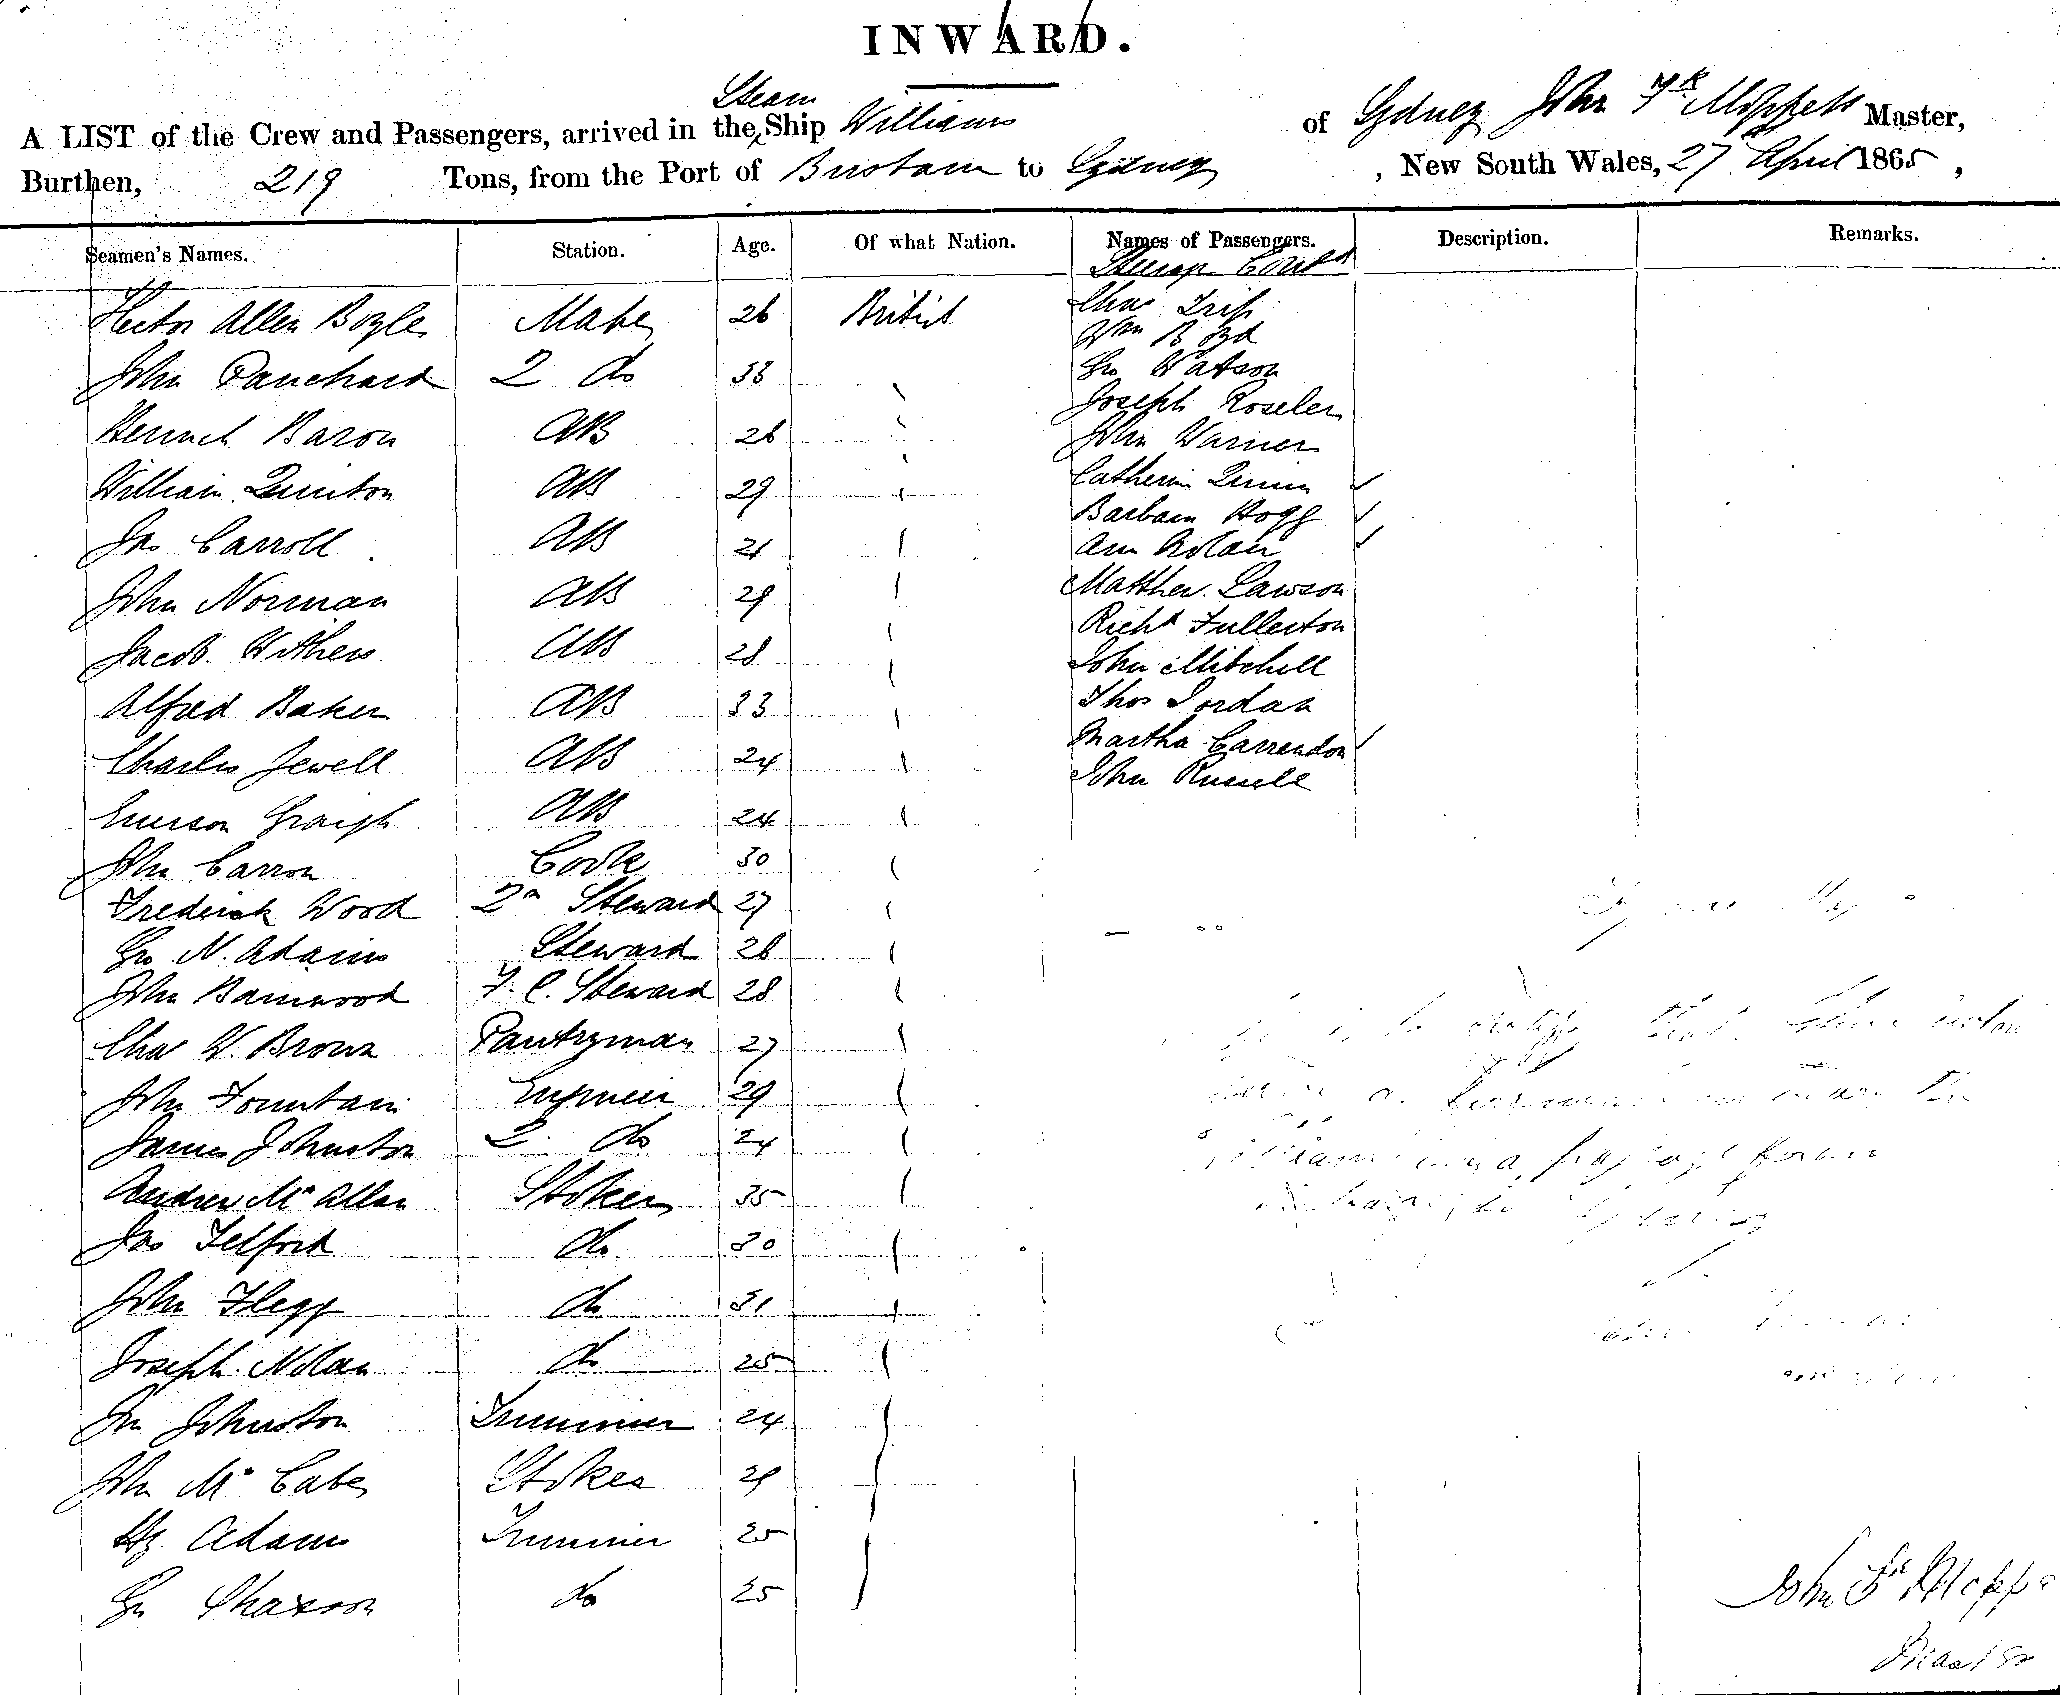 INWARD.
A LIST of the Crew and Passengers, arrived in the Steam Ship Williams of Sydney John Fk Moppett Master,
Burthen, 219 Tons, from the Port of Brisbane to Sydney, New South Wales, 27 April 1865,
Seamen's Names. Station. Age. Of what Nation. Names of Passengers. Description. Remarks.
Steerage Contd
Hector Allen Boyle Mate 26 British
John Panchard 2 do 33
Baron AB 26
William Quinton AB 29
Jas Carroll AB 21
John Norman AB 29
Jacob Withers AB 28
Alfred Baker AB 33
Charles Jewell AB 24
Emerson Graigh AB 24
John Carron Cook 30
Frederick Wood 2n Steward 27
Geo N. Adams Steward 28
John Barnwood F. C. Steward 28
Chas W. Brown Pantryman 27
John Fountain Engineer 29
James Johnston 2 do 24
Andrew Mc Allan Stoker 35
Jas Telford do 30
John Flegg do 31
Joseph Nolan do 25
Jn Johnston Trimmer 24
John Mc Cabe Stoker 29
Hy Adams Trimmer 25
Geo do 25
Chas
Wm Boyd
Geo Watson
Joseph Roseler
John Warner
Catherin Quinn
Barbara Hogg
Ann Nolan
Matthew Lawson
Richd Fullerton
John Mitchell
Thos Jordan
Martha Carrendon
John Russell
to certify that
passage from
to Sydney
John Fk Mopp
Master